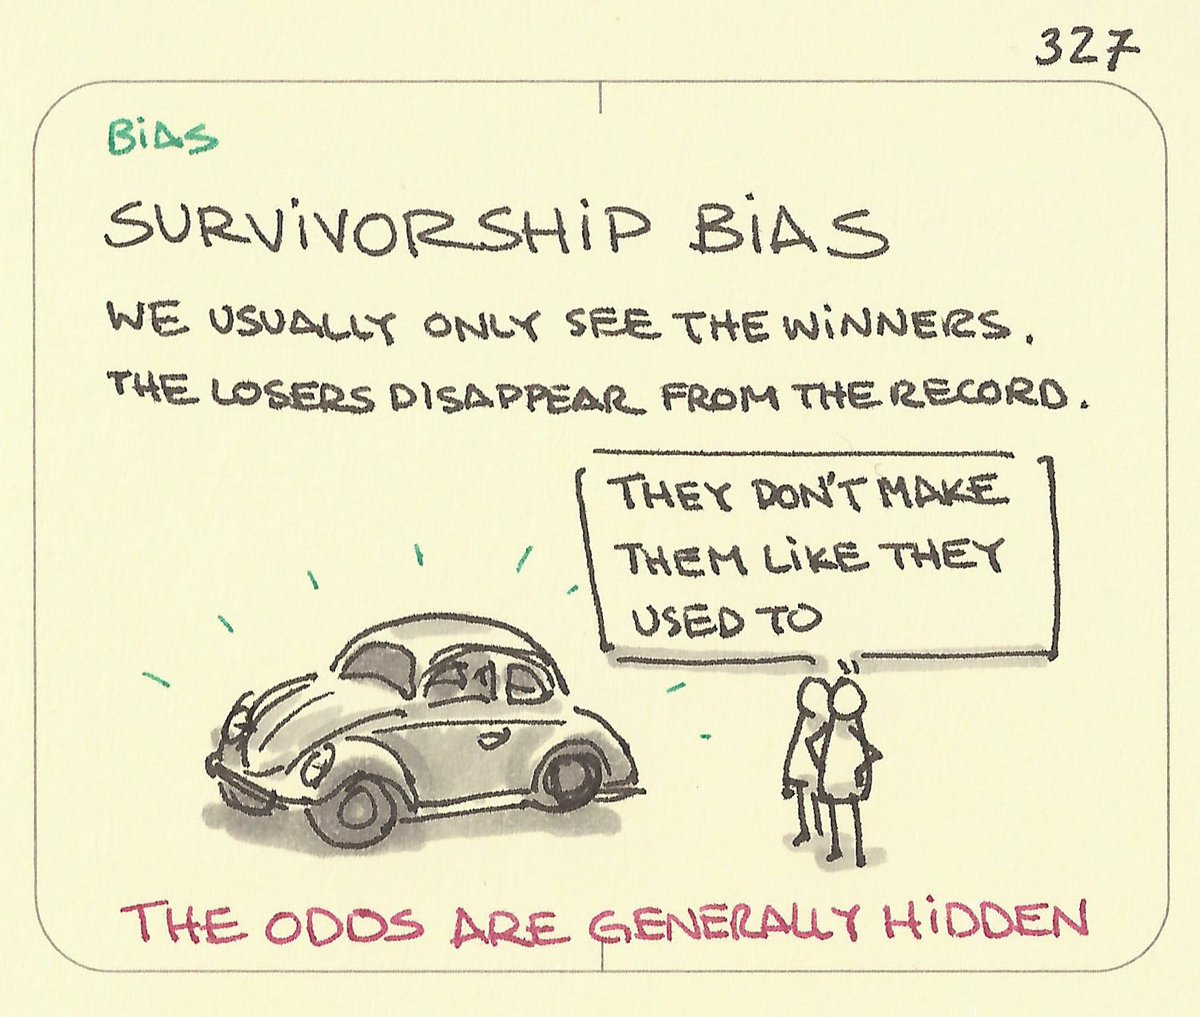 327
BiAS
SURViVORSHiP BiAS
WE USUALLY ONLY SEE THE WiNNERS.
THE LOSERS DISAPPEAR FROM THE RECORD.
THEY DON'T MAKE
THEM LiKE THEY
USED TO
THE ODDS ARE GENERALLY HiDDEN